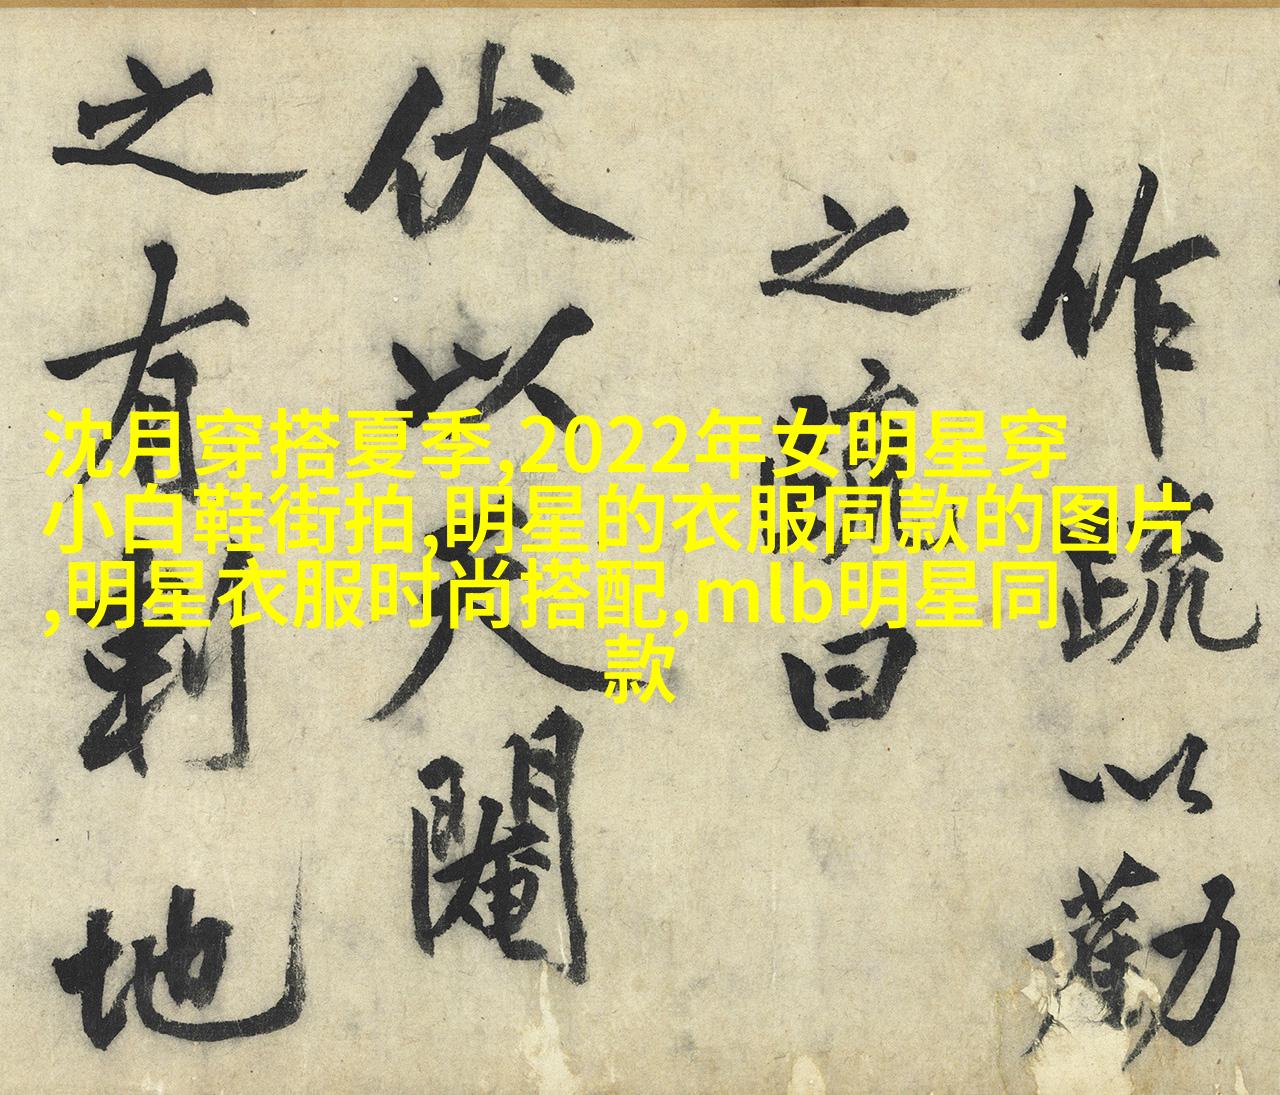 作疏以勸
之疏曰
伏以閹
之有刹地
沈月穿搭夏季,2022年女明星穿
小白鞋街拍,眀星的衣服同款的图片
,明星衣服时尚搭配,mlb明星同
款